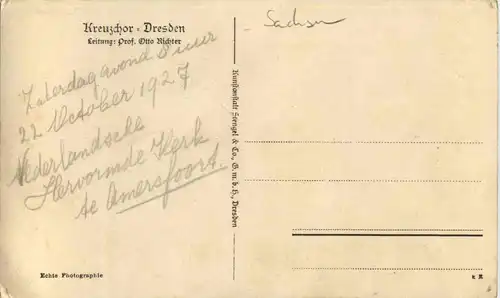 Kreuzchor - Dresden
Leitung: Prof. Otto Richter
Zaterdagavond 8 uur
22 October 1927
Nederlandsche
Hervormde Kerk
te Amersfoort.
Echte Photographie
Kunstanstalt Stengel & Co., G. m. b. H., Dresden
Sachsen